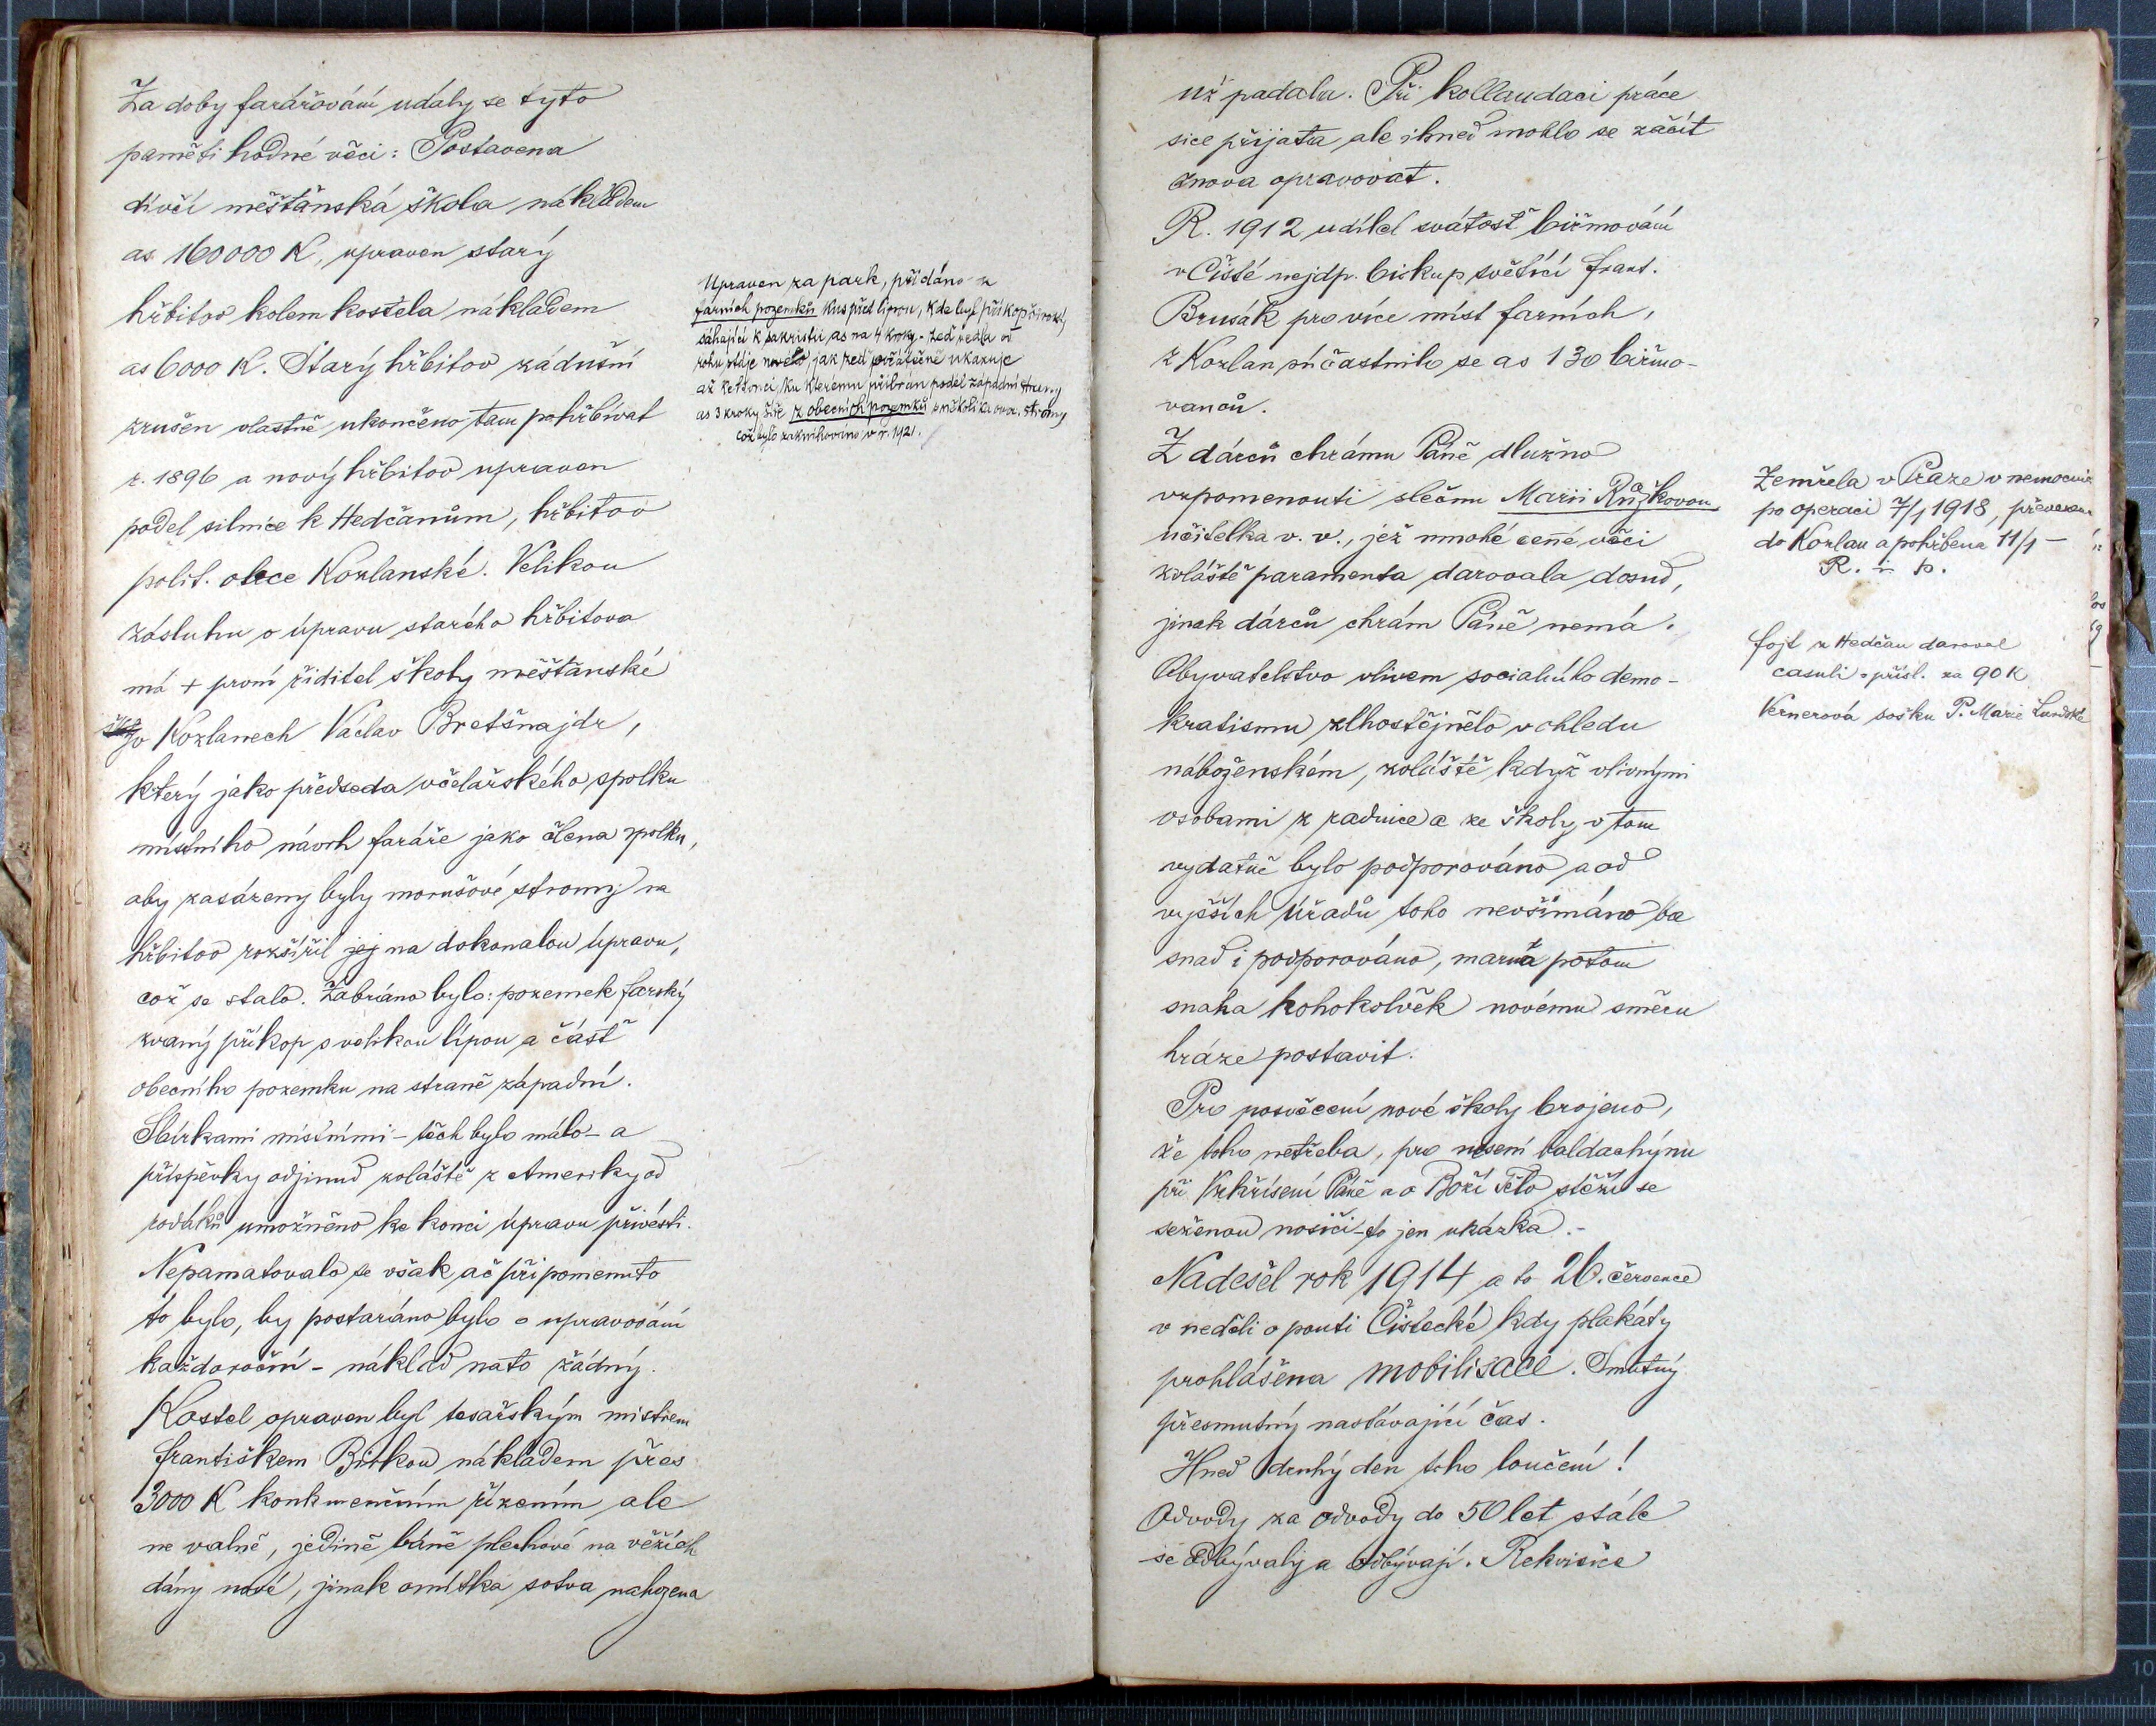 Za doby farářování udály se tyto
paměti hodné věci: Postavena
dívčí měšťanská škola nákladem
as 160000 K, upraven starý
hřbitov kolem kostela nákladem
as 6000 K. Starý hřbitov zádušní
zrušen vlastně ukončeno tam pohřbívat
r. 1896 a nový hřbitov upraven
podél silnice k Hedčanům, hřbitov
polit. obce Kozlanské. Velikou
zásluhu o úpravu starého hřbitova
má + první řiditel školy měšťanské
v Kozlanech Václav Bretšnajdr,
který jako předseda včelařského spolku
místního návrh faráře jako člena spolku,
aby zasázeny byly morušové stromy na
hřbitov rozšířil jej na dokonalou úpravu,
což se stalo. Zabráno bylo: pozemek farský
zvaný příkop s velikou lípou a část
obecního pozemku na straně západní.
Sbírkami místními - těch bylo málo - a
příspěvky odjinud zvláště z Ameriky od
rodáků umožněno ke konci úpravu přivésti.
Nepamatovalo se však ač připomenuto
to bylo, by postaráno bylo o upravování
každoroční - náklad na to žádný.
Kostel opraven byl tesařským mistrem
Františkem Bítkou nákladem přes
3000 K konkurenčním řízením ale
ne valně, jedině báně plechové na věžích
dány nové, jinak omítka sotva nahozena
Upraven za park, přidáno z
farních pozemků kus před lípou, kde byl příkop široký,
sáhající k sakristii as na 4 kroky. - Zeď vedla od
rohu stáje, jak zeď ukazuje
až ke konci, ku kterému přibrán podél západní strany
as 3 kroky šíře z obecních pozemků s několika ovoc. stromy
což bylo zaknihováno v r. 1921.
už padala. Při kollaudaci práce
sice přijata, ale ihned mohlo se začít
znova opravovat.
R. 1912 udílel svátost biřmování
v Čisté nejdp. biskup světící Frant.
Brusák pro více míst farních,
z Kozlan súčastnilo se as 130 biřmo-
vanců.
Z dárců chrámu Páně dlužno
vzpomenouti slečnu Marii Růžkovou,
učitelka v. v., jež mnohé cenné věci
zvláště paramenta darovala dosud,
jinak dárců chrám Páně nemá.
Obyvatelstvo vlivem sociálního demo-
kratismu zlhostějnělo v ohledu
náboženském, zvláště když vlivnými
osobami z radnice a ze školy v tom
vydatně bylo podporováno a od
vyšších úřadů toho nevšímáno ba
snad i podporováno, marná potom
snaha kohokolvěk novému směru
hráze postavit.
Pro posvěcení nové školy brojeno,
že toho netřeba, pro nesení baldachýnu
při Vzkříšení Páně a o Boží Tělo stěží se
seženou nosiči - to jen ukázka. -
Nadešel rok 1914 a to 26. července
v neděli o pouti Čistecké kdy plakáty
prohlášena mobilisace. Smutný
přesmutný nastávající čas.
Hned druhý den toho loučení!
Odvody za odvody do 50 let stále
se odbývaly a odbývají. Rekvisice
Zemřela v Praze v nemocnici
po operaci 7/1 1918, převezena
do Kozlan a pohřbena 11/1 -
R. i. p.
Fojt z Hedčan daroval
casuli s přísl. za 90 K
Vernerová sošku P. Marie Lurdské